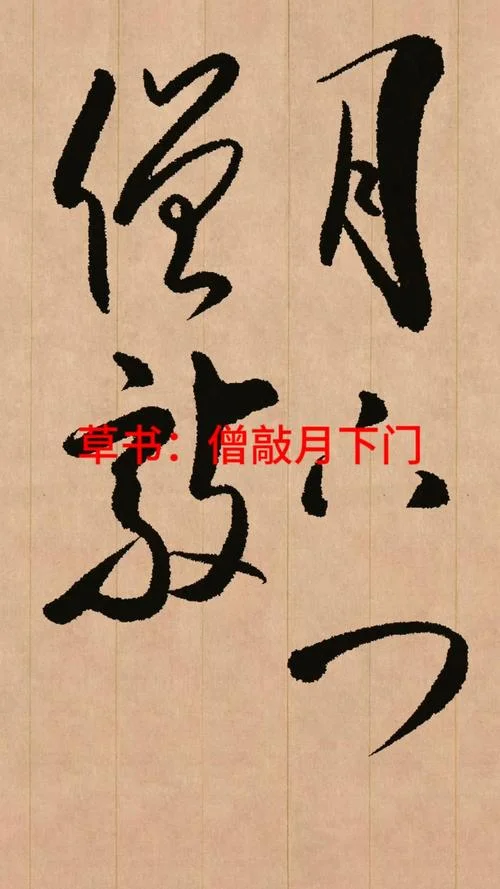 僧敲
月下门
草书：僧敲月下门